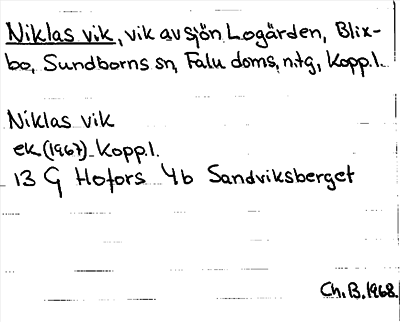 Niklas vik, vik av sjön Logärden, Blix-
bo, Sundborns sn, Falu doms.ntg, Kopp.l.
Niklas vik
ek(1967) Kopp.l.
13 G Hofors 4b Sandviksberget
Ch.B.1968.